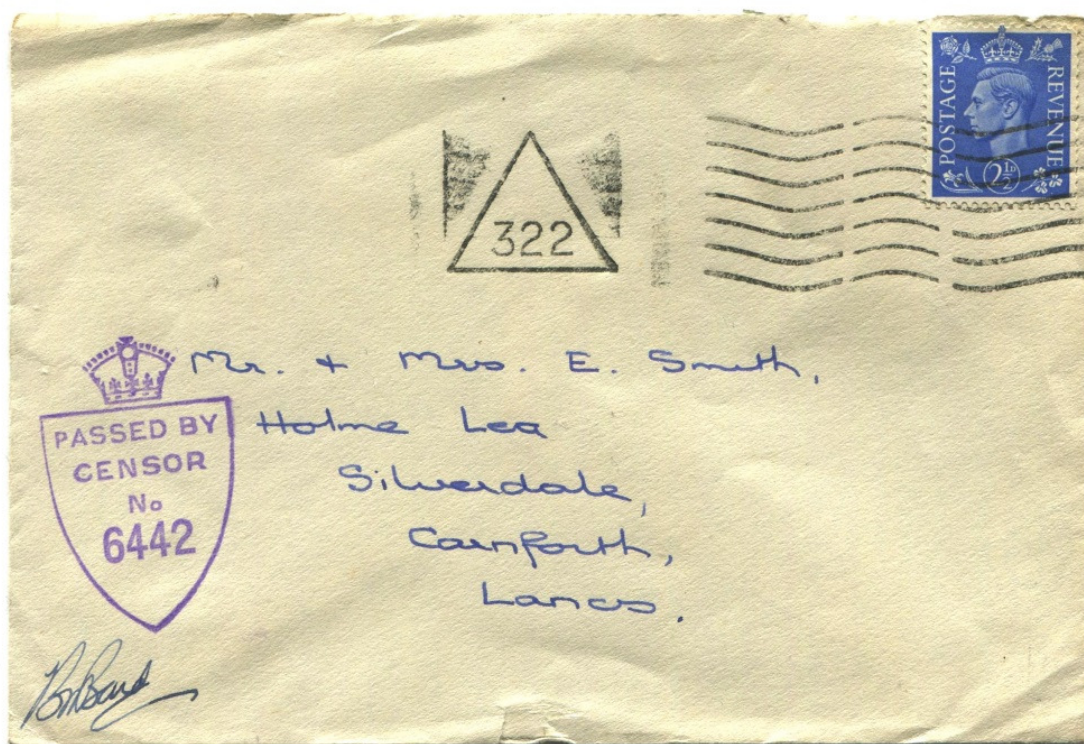 POSTAGE REVENUE
2½D
322
Mr. + Mrs. E. Smith,
Holme Lea
Silverdale,
Carnforth,
Lancs.
PASSED BY
CENSOR
No
6442